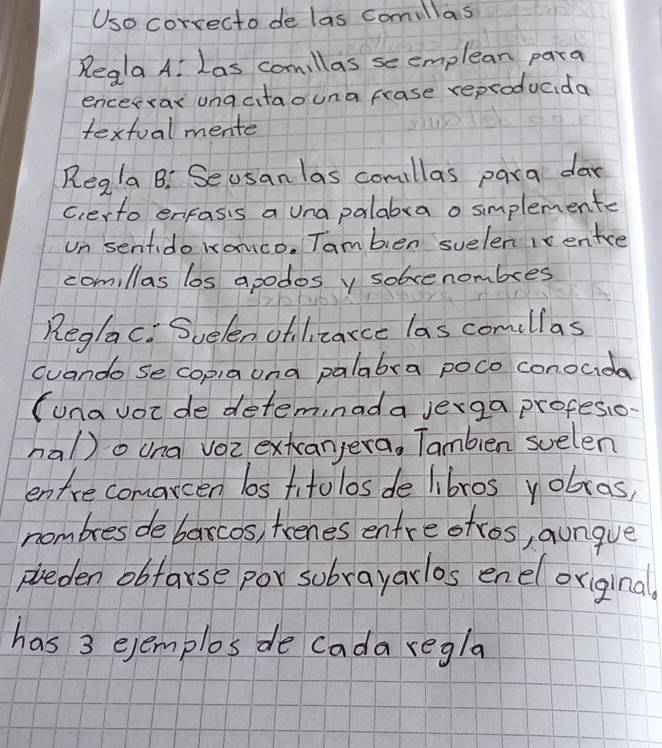 Uso correcto de las comillas
Regla A: Las comillas se emplean para
encerrar una cita o una frase reproducida
textual mente
Regla B: Se usan las comillas para dar
cierto enfasis a una palabra o simplemente
un sentido ironico. Tambien suelen ir entre
comillas los apodos y sobrenombres
Regla C: Suelen utilizarce las comillas
cuando se copia una palabra poco conocida
(una voz de deteminada jerga profesio-
nal) o una voz extranjera. Tambien suelen
entre comarcen los titulos de libros y obras,
nombres de barcos, trenes entre otros, aunque
pueden obtarse por subrayarlos en el original.
has 3 ejemplos de cada regla